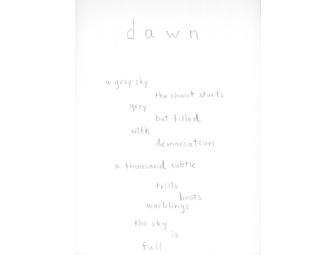 dawn
a grey sky
the chant starts
grey
but filled
with
demarcation
a thousand subtle
trills
hoots
warblings
the sky
is
full